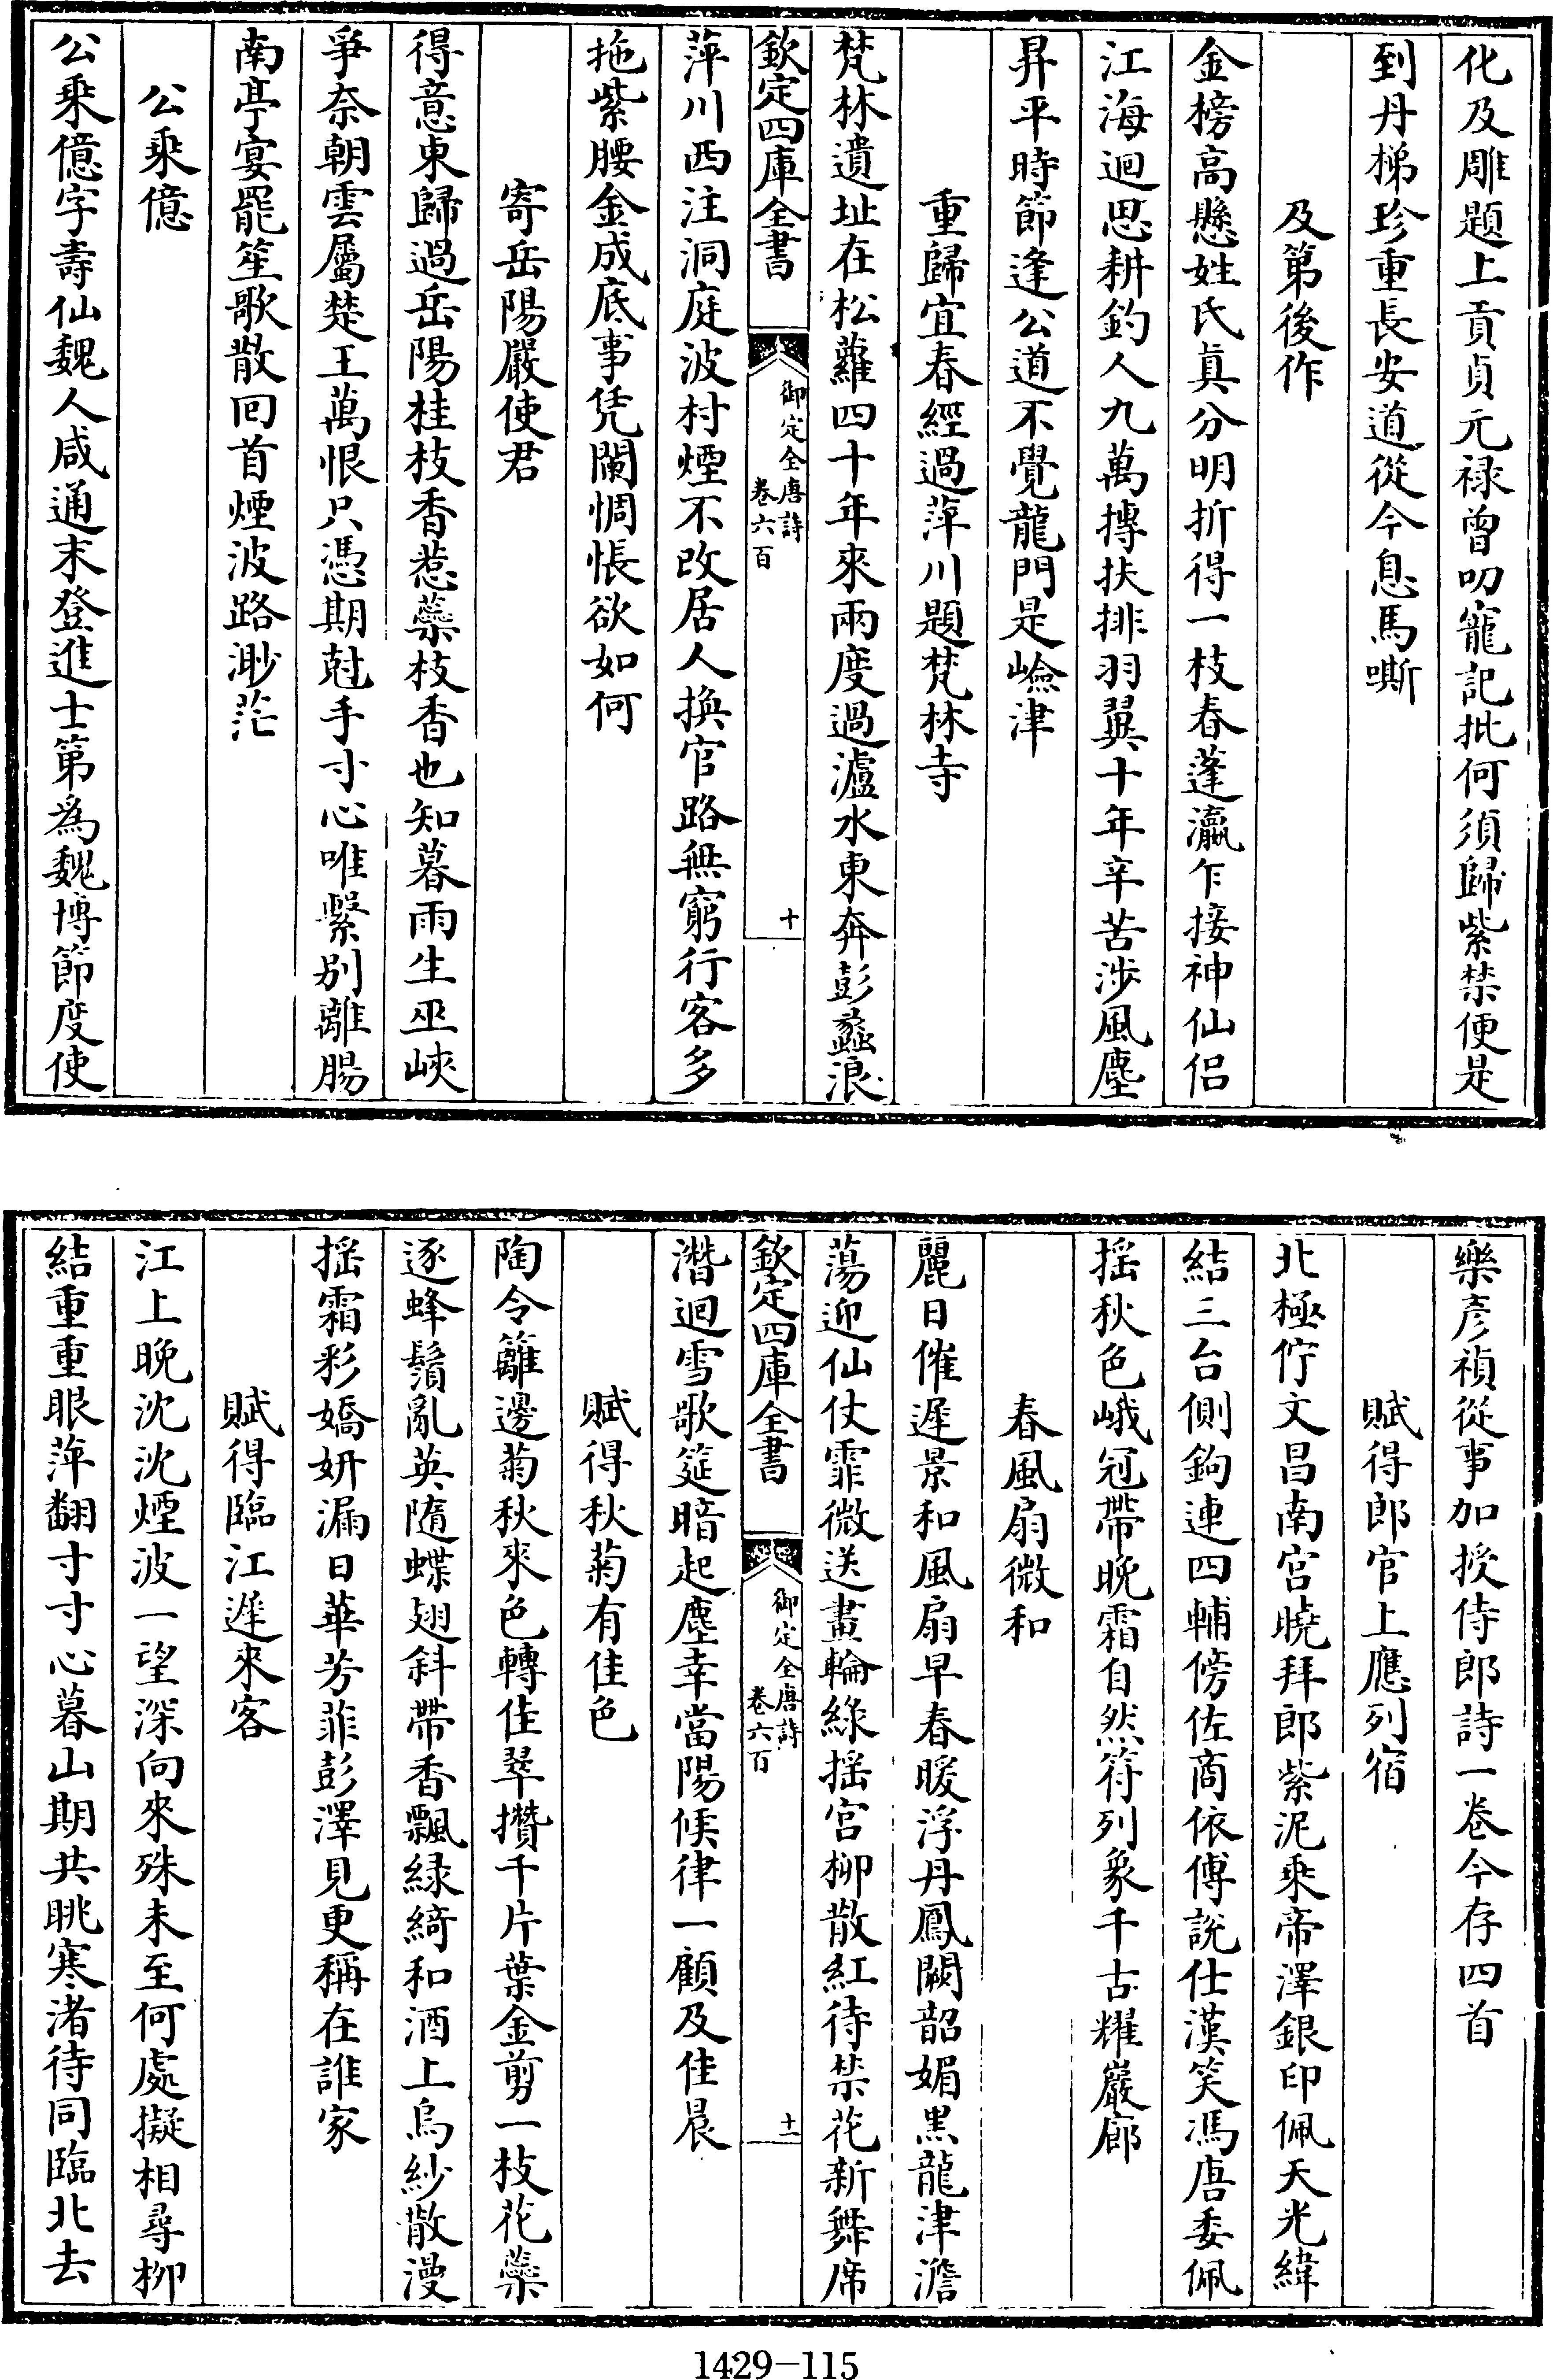 化及雕題上貢貞元禄曾叨寵記批何須歸紫禁便是
到丹梯珍重長安道從今息馬嘶
及第後作
金榜高懸姓氏真分明折得一枝春蓬瀛乍接神仙侣
江海迴思耕釣人九萬摶扶排羽翼十年辛苦涉風塵
昇平時節逢公道不覺龍門是嶮津
重歸宜春經過萍川題梵林寺
梵林遺址在松蘿四十年來兩度過瀘水東奔彭蠡浪
欽定四庫全書
御定全唐詩
卷六百
十
萍川西注洞庭波村煙不改居人換官路無窮行客多
拖紫腰金成底事凭闌惆悵欲如何
寄岳陽嚴使君
得意東歸過岳陽桂枝香惹蘂枝香也知暮雨生巫峽
爭奈朝雲屬楚王萬恨只憑期尅手寸心唯繫別離腸
南亭宴罷笙歌散回首煙波路渺茫
公乘億
公乘億字壽仙魏人咸通末登進士第為魏博節度使
樂彦禎從事加授侍郎詩一卷今存四首
賦得郎官上應列宿
北極佇文昌南宫曉拜郎紫泥乘帝澤銀印佩天光緯
結三台側鉤連四輔傍佐商依傅說仕漢笑馮唐委佩
摇秋色峨冠帶晚霜自然符列象千古耀巖廊
春風扇微和
麗日催遲景和風扇早春暖浮丹鳳闕韶媚黑龍津澹
蕩迎仙仗霏微送畫輪緑揺宫柳散紅待禁花新舞席
欽定四庫全書
御定全唐詩
卷六百
十一
潛迴雪歌筵暗起塵幸當陽候律一顧及佳晨
賦得秋菊有佳色
陶令籬邊菊秋來色轉佳翠攢千片葉金剪一枝花蘂
逐蜂鬚亂英隨蝶翅斜帶香飄緑綺和酒上烏紗散漫
揺霜彩嬌妍漏日華芳菲彭澤見更稱在誰家
賦得臨江遲來客
江上晚沈沈煙波一望深向來殊未至何處擬相尋柳
結重重眼萍翻寸寸心暮山期共眺寒渚待同臨北去
1429-115